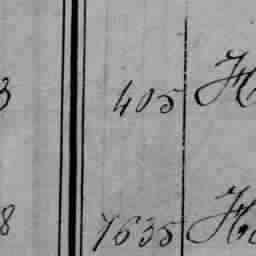 3 405 H
8 7635 Ho